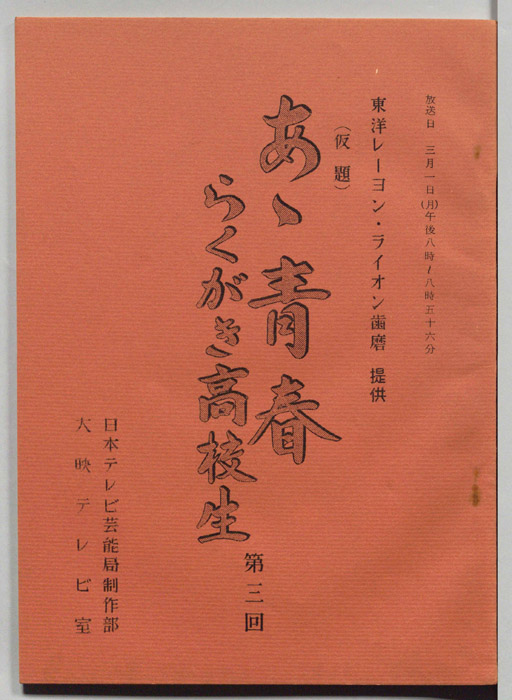 放送日 三月一日(月)午後八時〜八時五十六分
東洋レーヨン・ライオン歯磨 提供
(仮題)
あゝ青春
らくがき高校生
第三回
日本テレビ芸能局制作部
大映テレビ室